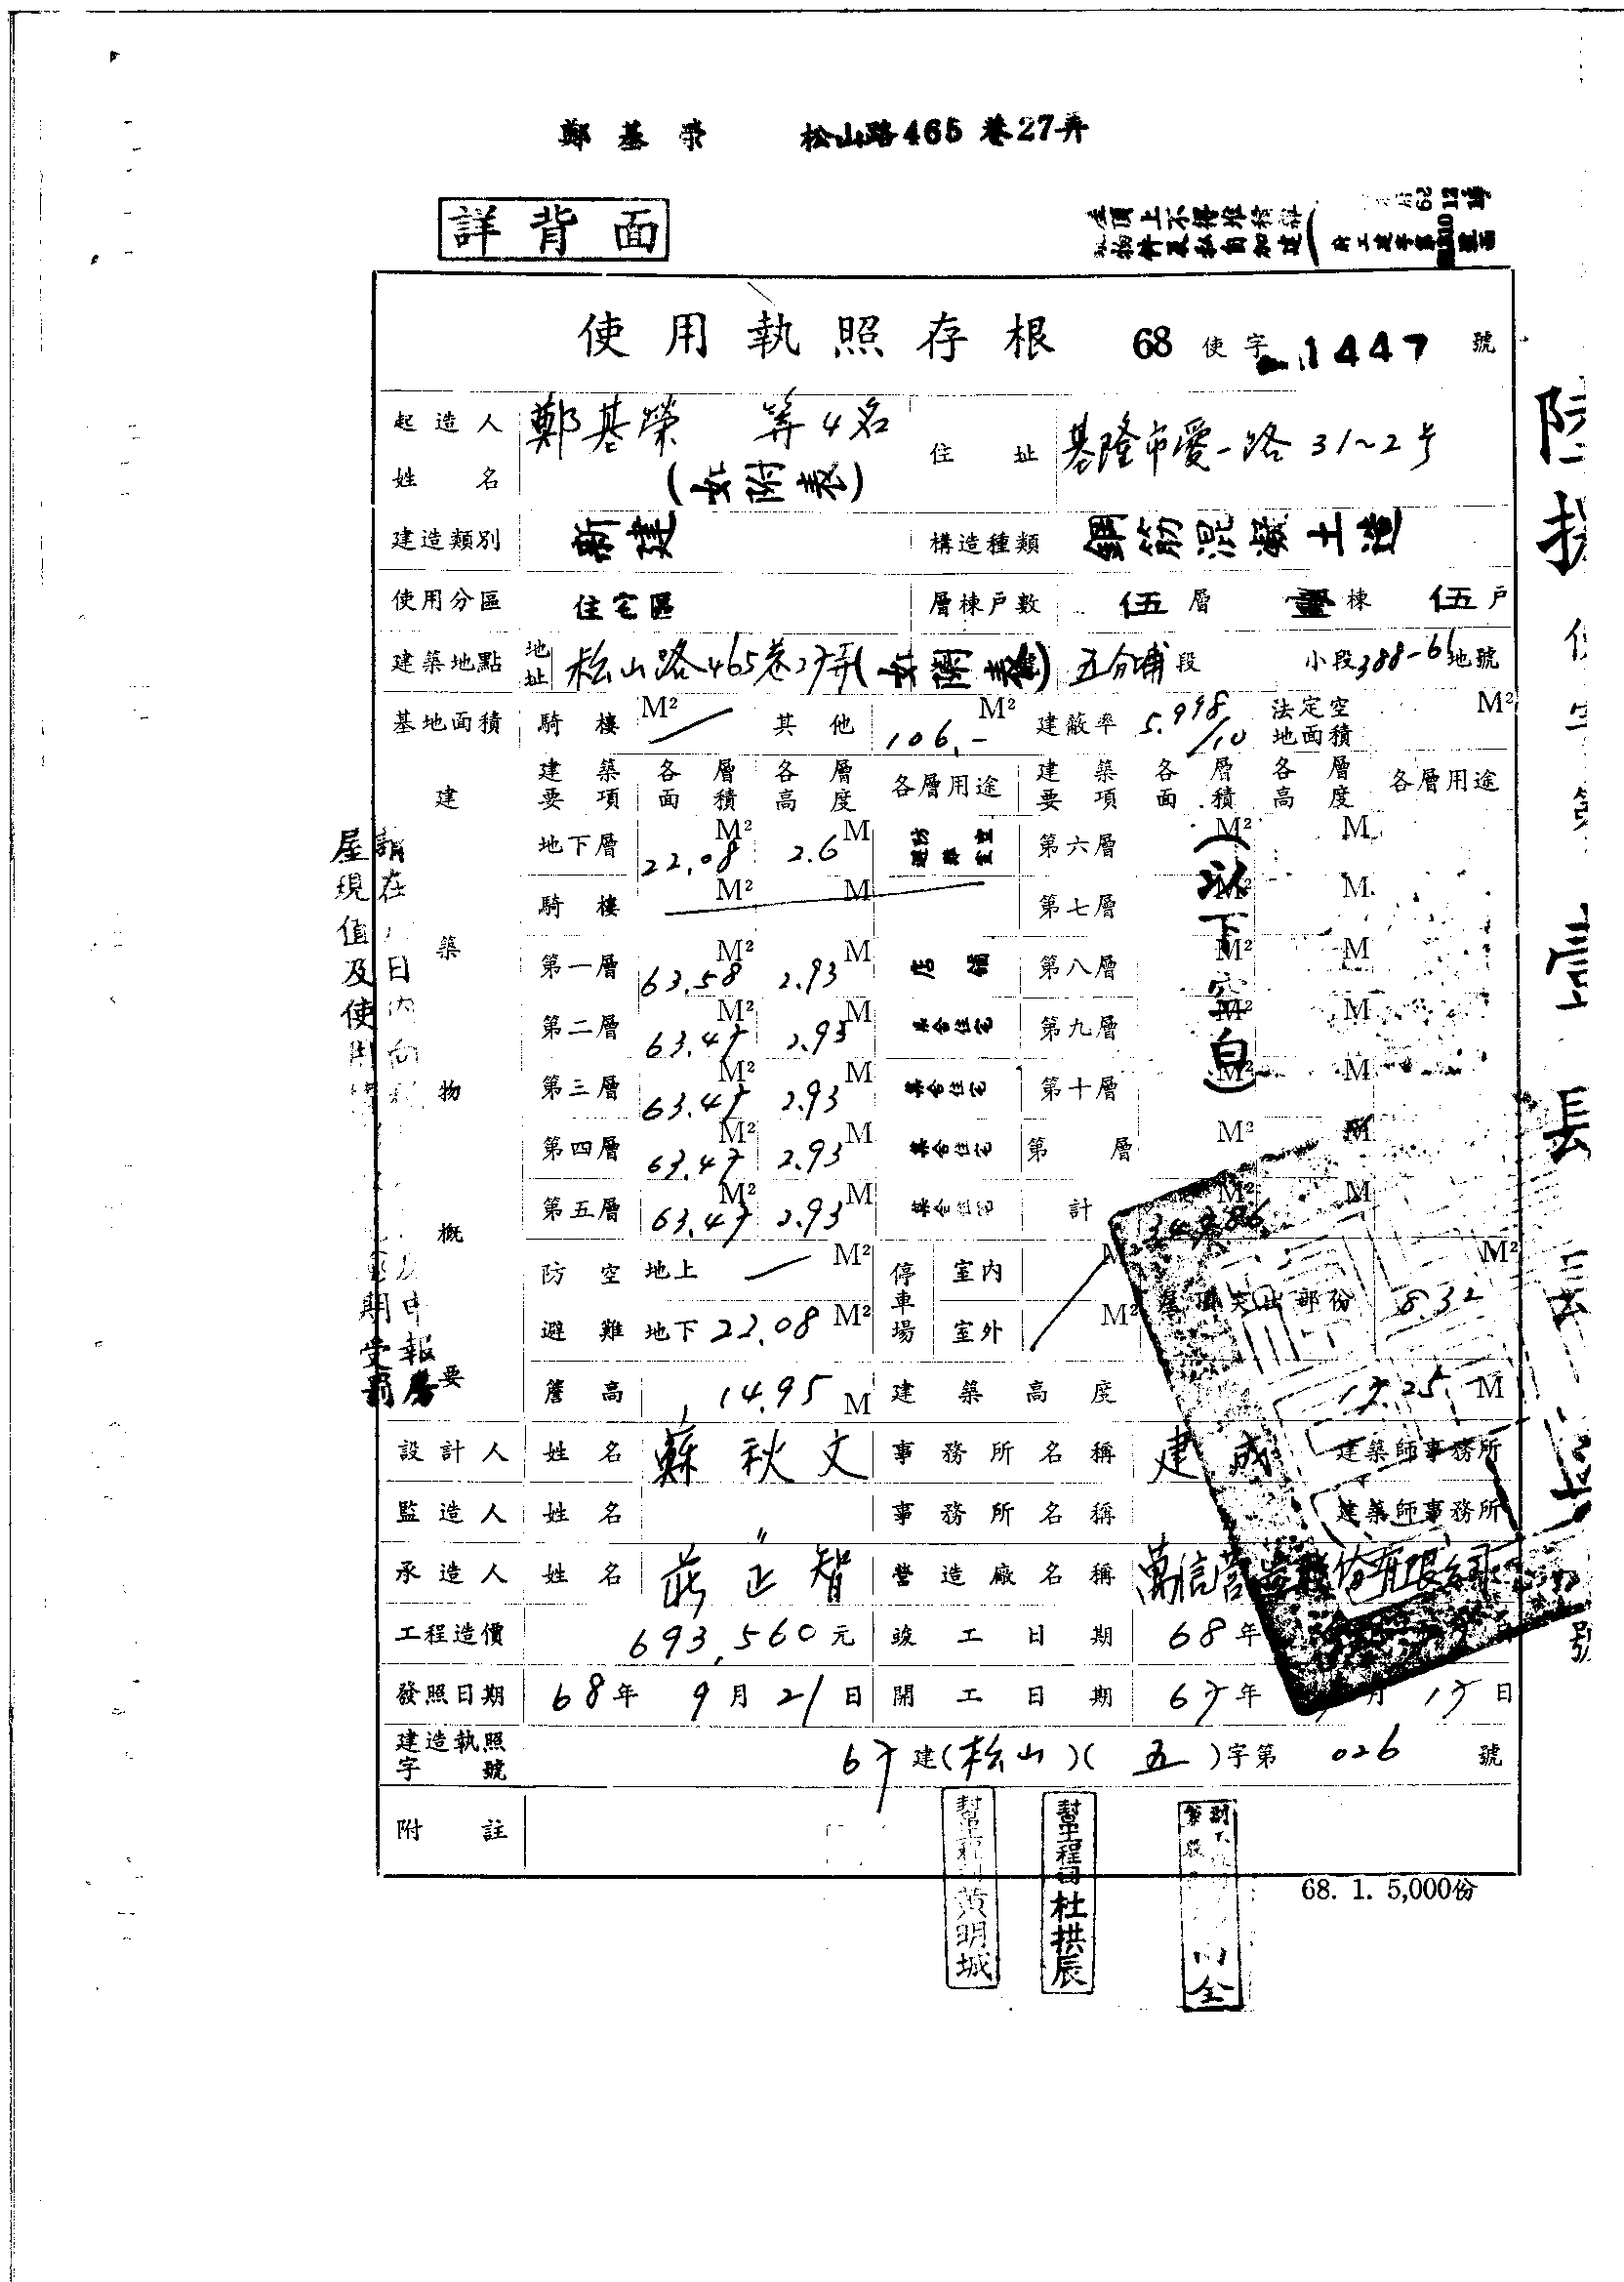 鄭基榮 松山路465巷27弄
詳背面
使用執照存根 68 使字 1447 號
起造人姓名 鄭基榮 等4名 (如附表) 住址 基隆市愛一路31~2号
建造類別 新建 構造種類 鋼筋混凝土造
使用分區 住宅區 層棟戶數 伍層 壹棟 伍戶
建築地點 地址 松山路465巷27弄(如附表) 五分埔段 小段388-61地號
基地面積 騎樓 M² 其他 106.- M² 建蔽率 5.998/10 法定空地面積 M²
建築物概要
建築要項 各層面積 各層高度 各層用途 建築要項 各層面積 各層高度 各層用途
地下層 22.08 M² 2.6 M 防空避難室 第六層 M² M
騎樓 M² M 第七層 M² M
第一層 63.58 M² 2.93 M 店舖 第八層 M² M
第二層 63.47 M² 2.93 M 集合住宅 第九層 M² M
第三層 63.47 M² 2.93 M 集合住宅 第十層 M² M
第四層 63.47 M² 2.93 M 集合住宅 第 層 M² M
第五層 63.47 M² 2.93 M 集合住宅 計 M² M
(以下空白)
防空避難 地上 M² 停車場 室內 M² 屋頂突出部份 8.32 M²
地下 22.08 M² 室外 M²
簷高 14.95 M 建築高度 17.25 M
設計人 姓名 蘇秋文 事務所名稱 建成 建築師事務所
監造人 姓名 〃 事務所名稱 建築師事務所
承造人 姓名 正智 營造廠名稱 萬信營造股份有限公司
工程造價 693,560元 竣工日期 68年
發照日期 68年 9月 21日 開工日期 67年 月 17日
建造執照字號 67建(松山)(五)字第 026 號
附註
68. 1. 5,000份
黃明城
幫工程司杜拱辰